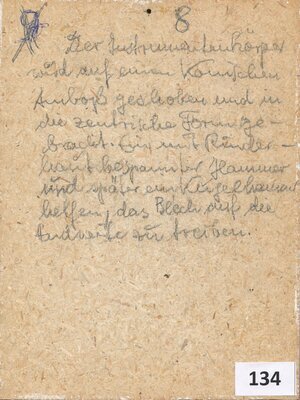 8
Der Instrumentenkörper
wird auf einen konischen
Amboß geschoben und in
die zentrische Form ge-
bracht. Ein mit Rinder-
haut bespannter Hammer
und später ein Kugelhammer
helfen, das Blech auf die
Endweite zu treiben.
134